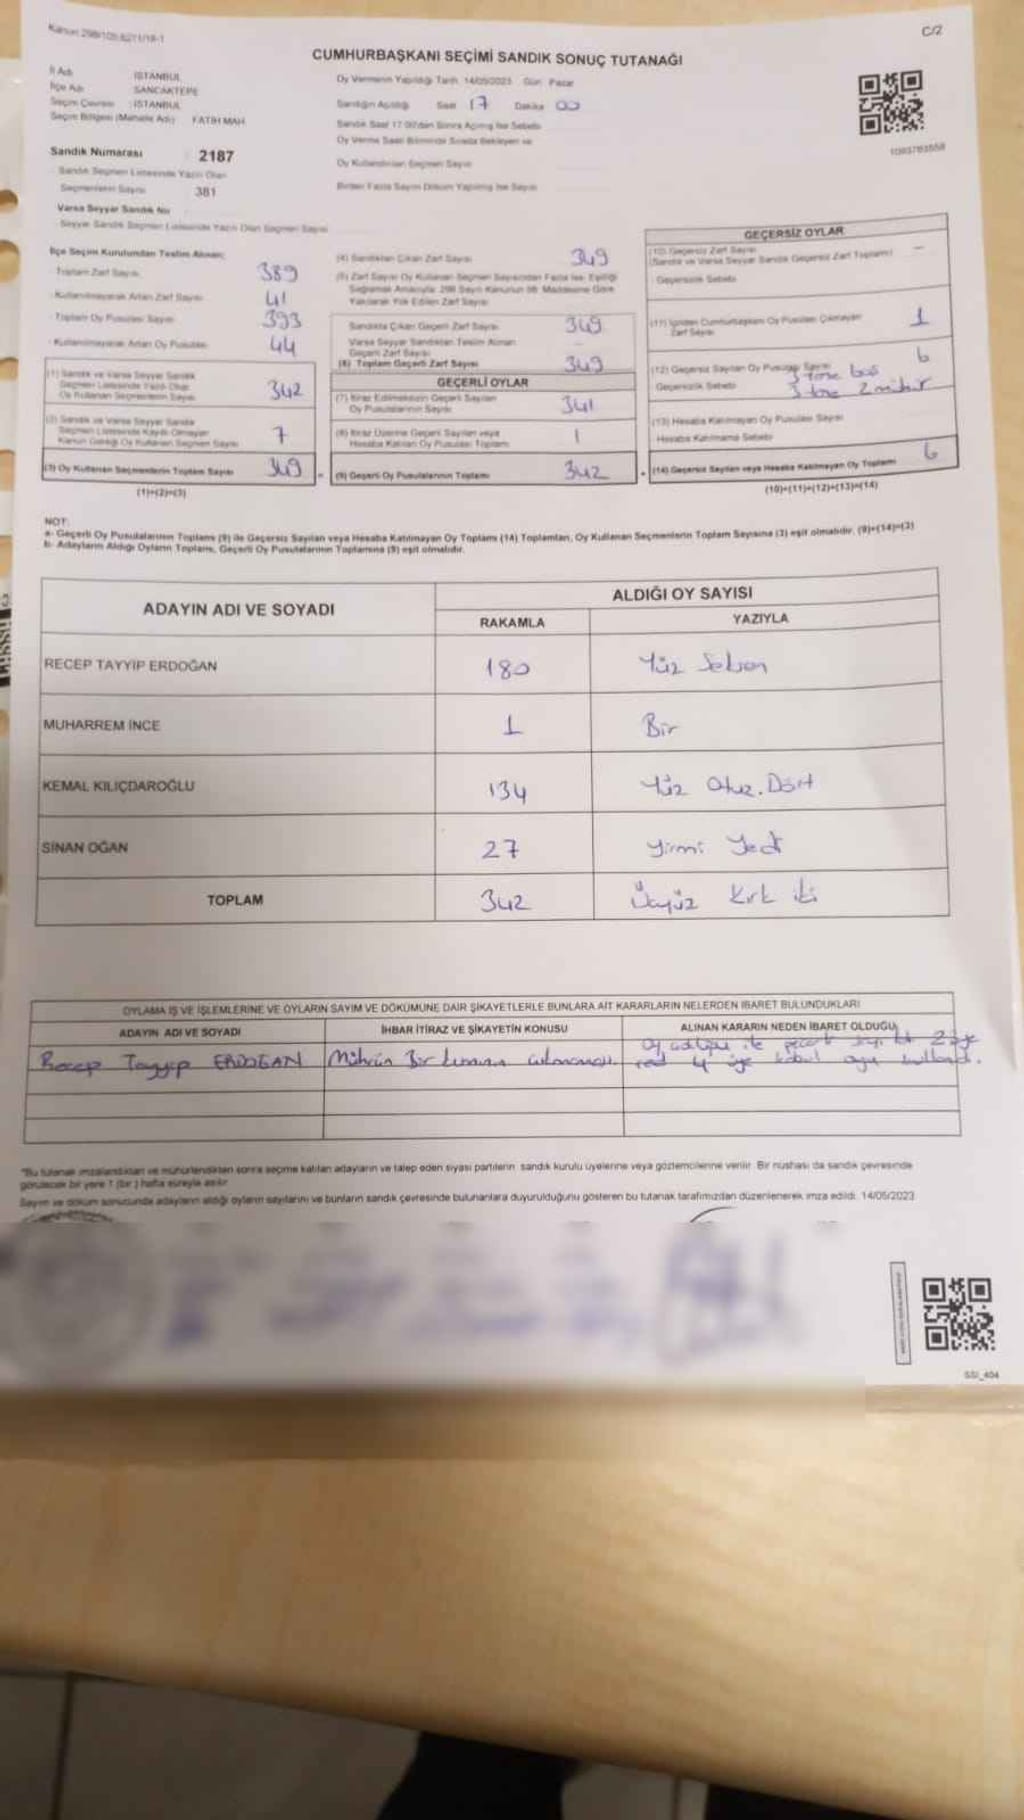 Kanun 298/105,
C/2
CUMHURBAŞKANI SEÇİMİ SANDIK SONUÇ TUTANAĞI
İl Adı İSTANBUL
İlçe Adı SANCAKTEPE
Seçim Çevresi İSTANBUL
Seçim Bölgesi (Mahalle Adı) FATİH MAH.
Sandık Numarası 2187
Sandık Seçmen Listesinde Yazılı Olan
Seçmenlerin Sayısı 381
Varsa Seyyar Sandık No
Seyyar Sandık Seçmen Listesinde Yazılı Olan Seçmen Sayısı
Oy Vermenin Yapıldığı Tarih 14/05/2023 Gün Pazar
Sandığın Açıldığı Saat 17 Dakika 00
Sandık Saat 17.00'dan Sonra Açılmış İse Sebebi
Oy Verme Saati Bitiminde Sırada Bekleyen ve
Oy Kullandırılan Seçmen Sayısı
Birden Fazla Sayım Döküm Yapılmış İse Sayısı
1093783558
İlçe Seçim Kurulundan Teslim Alınan;
Toplam Zarf Sayısı 389
Kullanılmayarak Artan Zarf Sayısı 41
Toplam Oy Pusulası Sayısı 393
Kullanılmayarak Artan Oy Pusulası 44
(1) Sandık ve Varsa Seyyar Sandık
Seçmen Listesinde Yazılı Olup
Oy Kullanan Seçmenlerin Sayısı 342
(2) Sandık ve Varsa Seyyar Sandık
Seçmen Listesinde Kayıtlı Olmayan
Kanun Gereği Oy Kullanan Seçmen Sayısı 7
(3) Oy Kullanan Seçmenlerin Toplam Sayısı 349
(1)+(2)=(3)
(4) Sandıktan Çıkan Zarf Sayısı 349
(5) Zarf Sayısı Oy Kullanan Seçmen Sayısından Fazla İse, Eşitliği
Sağlamak Amacıyla 298 Sayılı Kanunun 98. Maddesine Göre
Yakılarak Yok Edilen Zarf Sayısı
Sandıkta Çıkan Geçerli Zarf Sayısı 349
Varsa Seyyar Sandıktan Teslim Alınan
Geçerli Zarf Sayısı
(6) Toplam Geçerli Zarf Sayısı 349
GEÇERLİ OYLAR
(7) İtiraz Edilmeksizin Geçerli Sayılan
Oy Pusulalarının Sayısı 341
(8) İtiraz Üzerine Geçerli Sayılan veya
Hesaba Katılan Oy Pusulası Toplamı 1
(9) Geçerli Oy Pusulalarının Toplamı 342
GEÇERSİZ OYLAR
(10) Geçersiz Zarf Sayısı
(Sandık ve Varsa Seyyar Sandık Geçersiz Zarf Toplamı) -
Geçersizlik Sebebi
(11) İçinden Cumhurbaşkanı Oy Pusulası Çıkmayan
Zarf Sayısı 1
(12) Geçersiz Sayılan Oy Pusulası Sayısı 6
Geçersizlik Sebebi 3 tane boş
3 tane 2 mühür
(13) Hesaba Katılmayan Oy Pusulası Sayısı
Hesaba Katılmama Sebebi
(14) Geçersiz Sayılan veya Hesaba Katılmayan Oy Toplamı 6
(10)+(11)+(12)+(13)=(14)
NOT:
a- Geçerli Oy Pusulalarının Toplamı (9) ile Geçersiz Sayılan veya Hesaba Katılmayan Oy Toplamı (14) Toplamları, Oy Kullanan Seçmenlerin Toplam Sayısına (3) eşit olmalıdır. (9)+(14)=(3)
b- Adayların Aldığı Oyların Toplamı, Geçerli Oy Pusulalarının Toplamına (9) eşit olmalıdır.
ADAYIN ADI VE SOYADI
ALDIĞI OY SAYISI
RAKAMLA YAZIYLA
RECEP TAYYİP ERDOĞAN 180 Yüz Seksen
MUHARREM İNCE 1 Bir
KEMAL KILIÇDAROĞLU 134 Yüz Otuz Dört
SİNAN OĞAN 27 Yirmi Yedi
TOPLAM 342 Üçyüz Kırk iki
OYLAMA İŞ VE İŞLEMLERİNE VE OYLARIN SAYIM VE DÖKÜMÜNE DAİR ŞİKAYETLERLE BUNLARA AİT KARARLARIN NELERDEN İBARET BULUNDUKLARI
ADAYIN ADI VE SOYADI İHBAR İTİRAZ VE ŞİKAYETİN KONUSU ALINAN KARARIN NEDEN İBARET OLDUĞU
Recep Tayyip ERDOĞAN Mührün Bir kısmının çıkmaması. Oy ile geçerli 2 üye
red 4 üye kabul oyu kullandı.
*Bu tutanak imzalandıktan ve mühürlendikten sonra seçime katılan adayların ve talep eden siyasi partilerin sandık kurulu üyelerine veya gözlemcilerine verilir. Bir nüshası da sandık çevresinde
görülecek bir yere 1 (bir) hafta süreyle asılır.
Sayım ve döküm sonucunda adayların aldığı oyların sayılarını ve bunların sandık çevresinde bulunanlara duyurulduğunu gösteren bu tutanak tarafımızdan düzenlenerek imza edildi. 14/05/2023
SSI_404